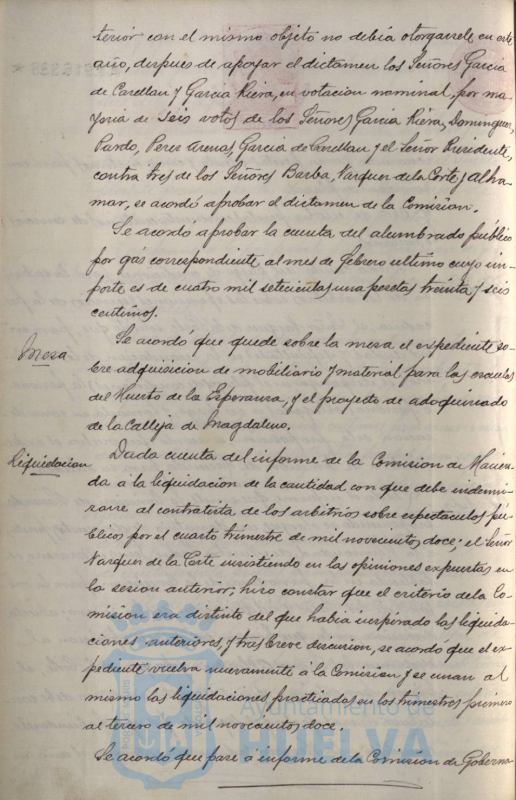 terior con el mismo objeto no debia otorgarsele en este
año, despues de apoyar el dictamen los Señores Garcia
de Carellan y Garcia Riera, en votacion nominal, por ma
yoria de seis votos de los Señores Garcia Riera, Dominguez,
Pardo, Perez Arenas, Garcia de Carellan y el Señor Presidente,
contra tres de los Señores Barba, Vazquez de la Corte y Alha
mar, se acordó aprobar el dictamen de la Comision.
Se acordó aprobar la cuenta del alumbrado público
por gas correspondiente al mes de Febrero ultimo cuyo im
porte es de cuatro mil setecientas una pesetas treinta y seis
centimos.
Mesa
Se acordó que quede sobre la mesa el expediente so-
bre adquisicion de mobiliario y material para las escuelas
del Huerto de la Esperanza, y el proyecto de adoquinado
de la Calleja de Magdaleno.
Liquidacion
Dada cuenta del informe de la Comision de Hacien-
da á la liquidacion de la cantidad con que debe indemni-
zarse al contratista de los arbitrios sobre espectaculos pú-
blicos por el cuarto trimestre de mil novecientos doce; el Señor
Vazquez de la Corte insistiendo en las opiniones expuestas en
la sesion anterior, hizo constar que el criterio de la Co-
mision era distinto del que habia inspirado las liquida-
ciones anteriores, y tras breve discusion, se acordó que el ex-
pediente vuelva nuevamente á la Comision y se unan al
mismo las liquidaciones practicadas en los trimestres primero
al tercero de mil novecientos doce.
Se acordó que pase á informe de la Comision de Goberna-
Ayuntamiento de
HUELVA